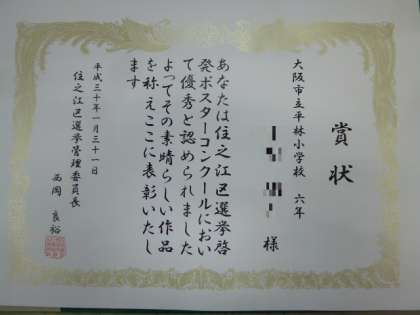 賞状
大阪市立平林小学校 六年
様
あなたは住之江区選挙啓
発ポスターコンクールにおい
て優秀と認められました
よってその素晴らしい作品
を称えここに表彰いたし
ます
平成三十年一月三十一日
住之江区選挙管理委員長
西岡 良裕